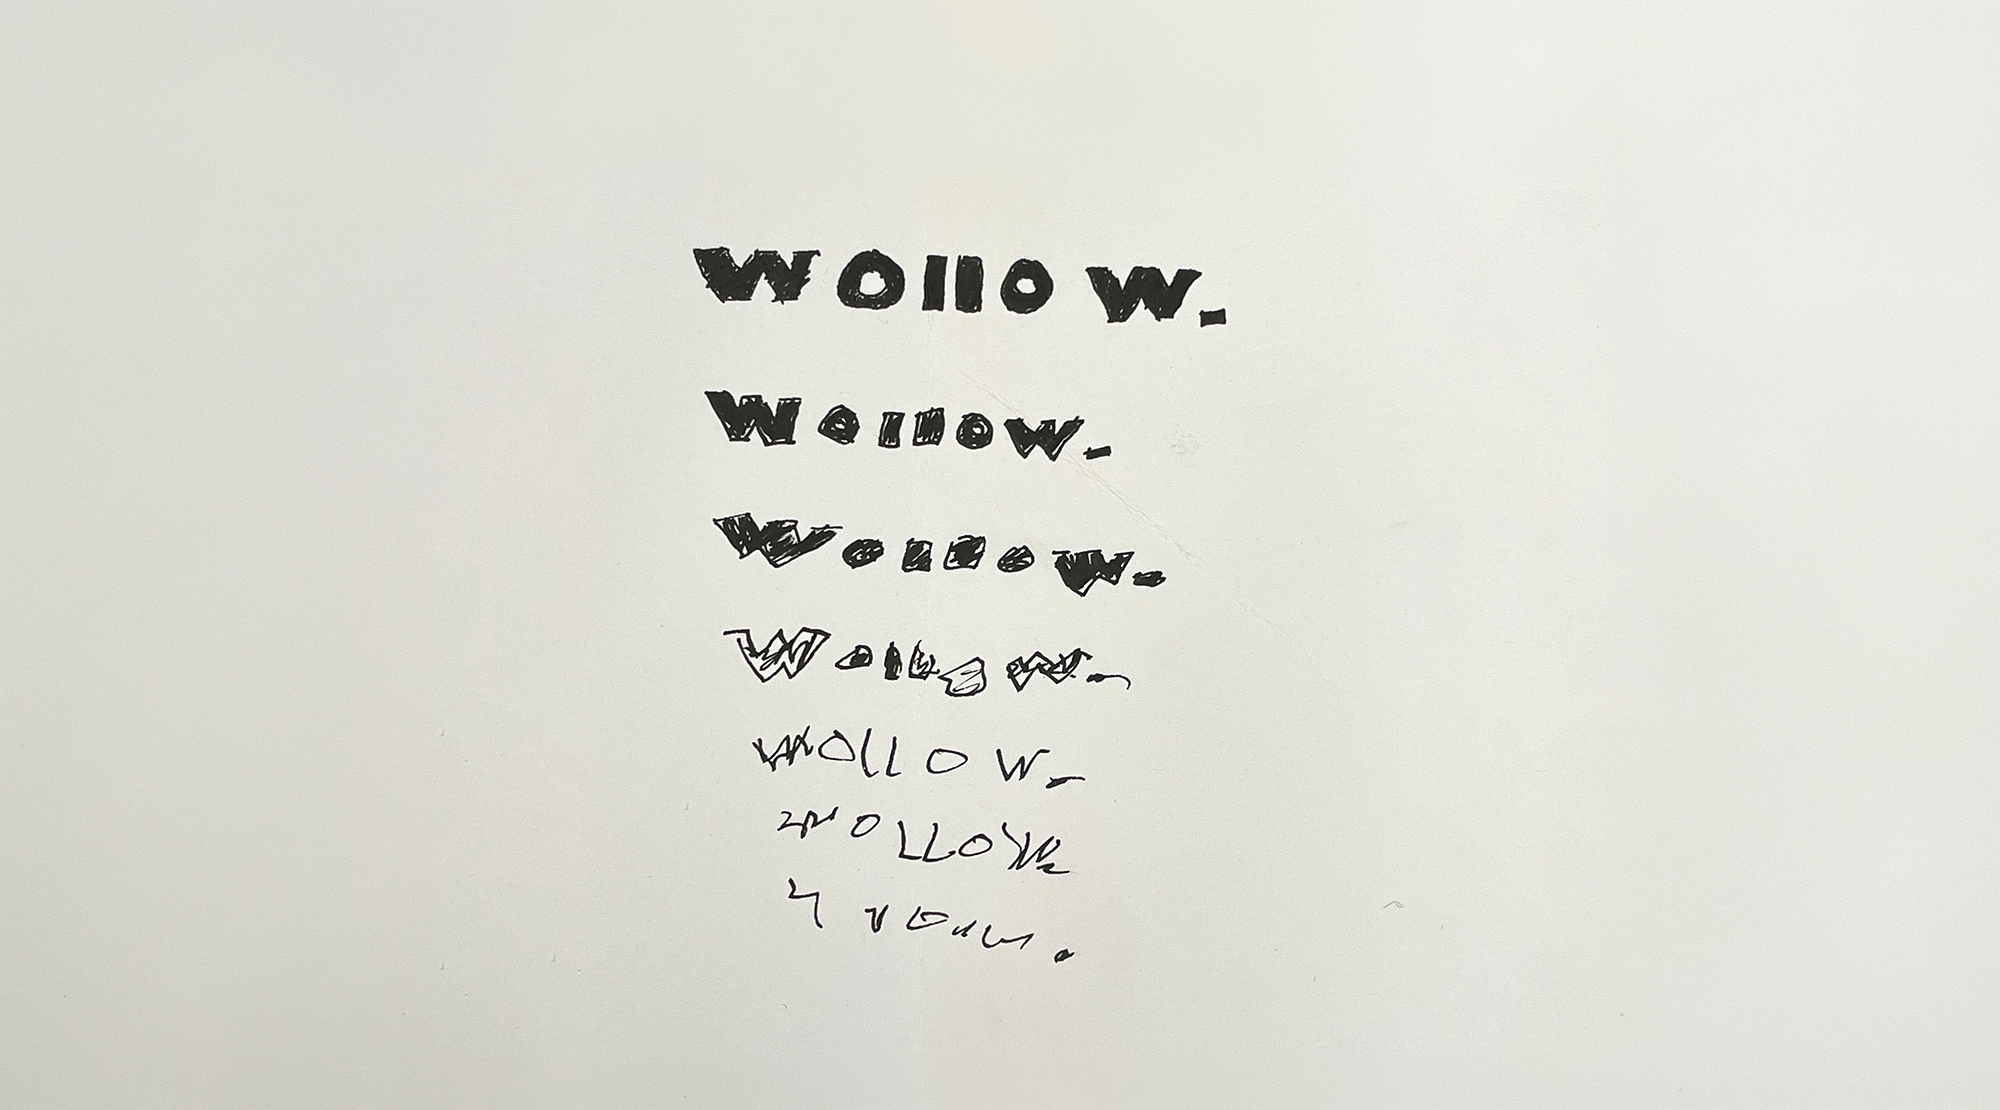 Wollow.
Wollow.
Wollow.
Wollow.
WOllow.
WOLLOW.